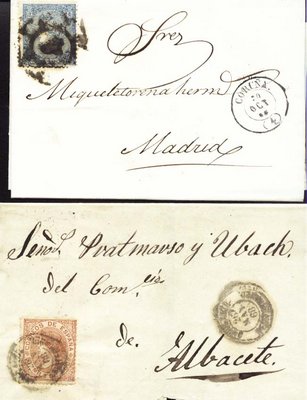 Sres
Miqueletorena herm
Madrid
CORUÑA
OCT
(4)
Señ
Pratmarso y Ubach
del Com
de
Albacete.
CORREOS DE ESPAÑA